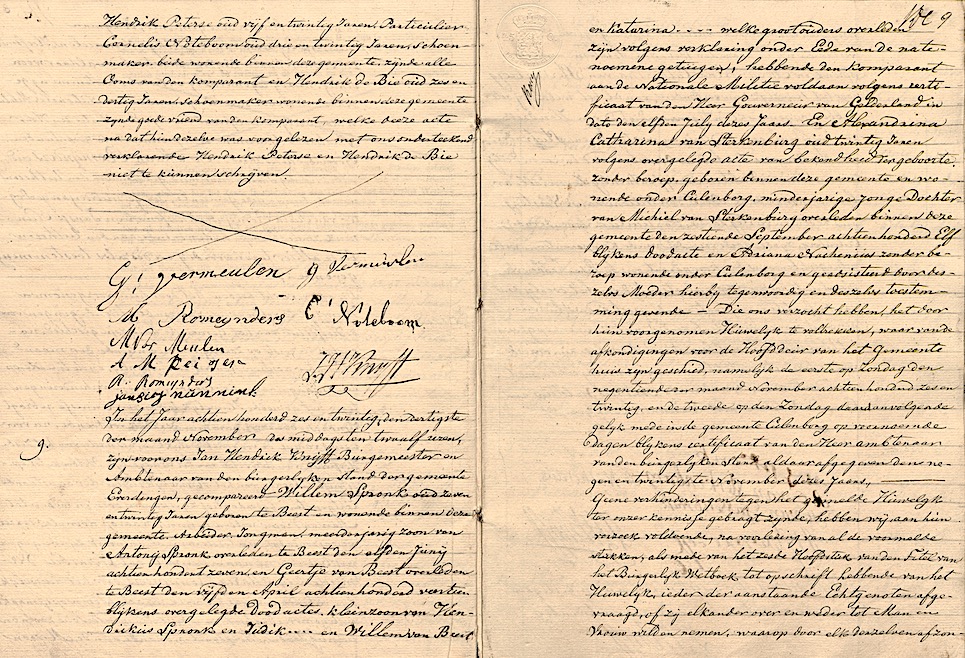 Hendrik Peterse oud vijf en twintig Jaren, Particulier
Cornelis Noteboom oud drie en twintig Jaren, schoen-
maker. beide wonende binnen deze gemeente, zijnde alle
Ooms van den komparant en Hendrik de Bie oud zes en
dertig Jaren, schoenmaker wonende binnen deze gemeente
zynde goede vriend van den komparant, welke deeze acte
na dat hun dezelve was voorgelezen met ons onderteekend
verklarende Hendrik Peterse en Hendrik de Bie
niet te kunnen schrijven.
G: Vermeulen g Vermeulen
M Romeynders C: Noteboom
M V der Meulen
A M
R. Romynders
JH Knijff
9.
In het Jaar achtien honderd zes en twintig, den dertigste
der maand November des middags ten twaalf uren,
zyn voor ons Jan Hendrick Knijff Burgemeester en
Ambtenaar van den burgerlyken stand der gemeente
Everdingen, gecompareerd Willem Spronk oud zeven
en twintig Jaren geboren te Beest en wonende binnen deze
gemeente. Arbeider, Jongman, meerderjarig zoon van
Antony Spronk overleden te Beest den elfden Junij
achtien hondert zeven en Geertje van Beest overleden
te Beest den vyfden April achtien honderd veertien
blykens overgelegde Doodactes, kleinzoon van Hen-
drickus Spronk en Judik .... en Willem van Beest
9
en Katarina .... welke grootouders overleden
zijn volgens verklaring onder Eede van de nate-
noemene getuigen; hebbende den komparant
aan de Nationale Militie voldaan volgens certi-
ficaat van den Heer Gouverneur van Gelderland in
dato den elfden July dezes Jaars. En Alexandrina
Catharina van Sterkenburg oud twintig Jaren
volgens overgelegde acte van bekendheid ter geboorte.
zonder beroep, geboren binnen deze gemeente en wo-
nende onder Culenborg, minderjarige Jonge Dochter
van Michiel van Sterkenburg overleden binnen deze
gemeente den zestiende September achtien honderd Elf
blykens doodacte en Adriana Nachenius zonder be-
roep wonende onder Culenborg en geadsisteerd door des-
zelvs Moeder hierby tegenwoordig en deszelvs toestem-
ming gevende — Die ons verzocht hebben, het door
hun voorgenomen Huwelyk te voltrekken, waar van de
afkondigingen voor de Hoofddeur van het Gemeente
huis zyn geschied, namelyk de eerste op zondag den
negentiende der maand November achtien honderd zes en
twintig, en de tweede op den Zondag daaraanvolgende
gelyk mede in de gemeente Culenborg op voornoemde
dagen blykens certificaat van den Heer ambtenaar
van den burgerlyken stand aldaar afgegeven den ne-
gen en twintigste November dezes Jaars,
Geene verhinderingen tegen het gemelde Huwelyk
ter onzer kennisse gebragt zynde, hebben wij aan hun
verzoek voldoende, na voorlezing van al de voormelde
stukken, als mede van het zesde Hoofdstuk van den Titel van
het Burgerlyk Wetboek tot opschrift hebbende van het
Huwelyk, ieder der aanstaande Echtgenoten afge-
vraagd, of zij elkander over en weder tot Man en
Vrouw wilden nemen, waarop door elk derzelven afzon-